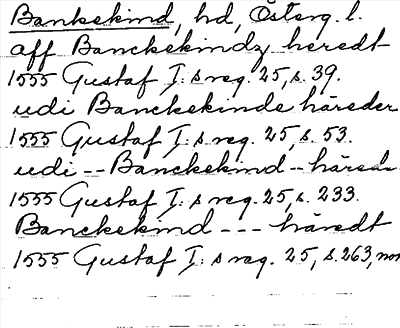 Bankekind, hd, Österg. l.
aff Banckekindz heredt
1555 Gustaf I:s reg. 25, s. 39.
udi Banckekinds häreder
1555 Gustaf I:s reg. 25, s. 53.
udi -- Banckekind -- härad
1555 Gustaf I:s reg. 25, s. 233.
Banckekind --- häredt
1555 Gustaf I:s reg. 25, s. 263, nor